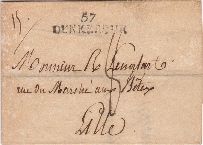 57
DUNKERQUE
Monsieur
rue du Marché aux Bêtes
Lille